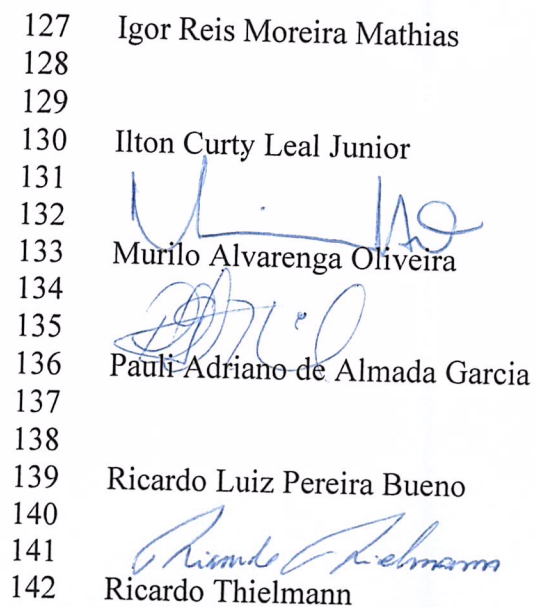 127 Igor Reis Moreira Mathias
128
129
130 Ilton Curty Leal Junior
131
132
133 Murilo Alvarenga Oliveira
134
135
136 Pauli Adriano de Almada Garcia
137
138
139 Ricardo Luiz Pereira Bueno
140
141 Ricardo Thielmann
142 Ricardo Thielmann